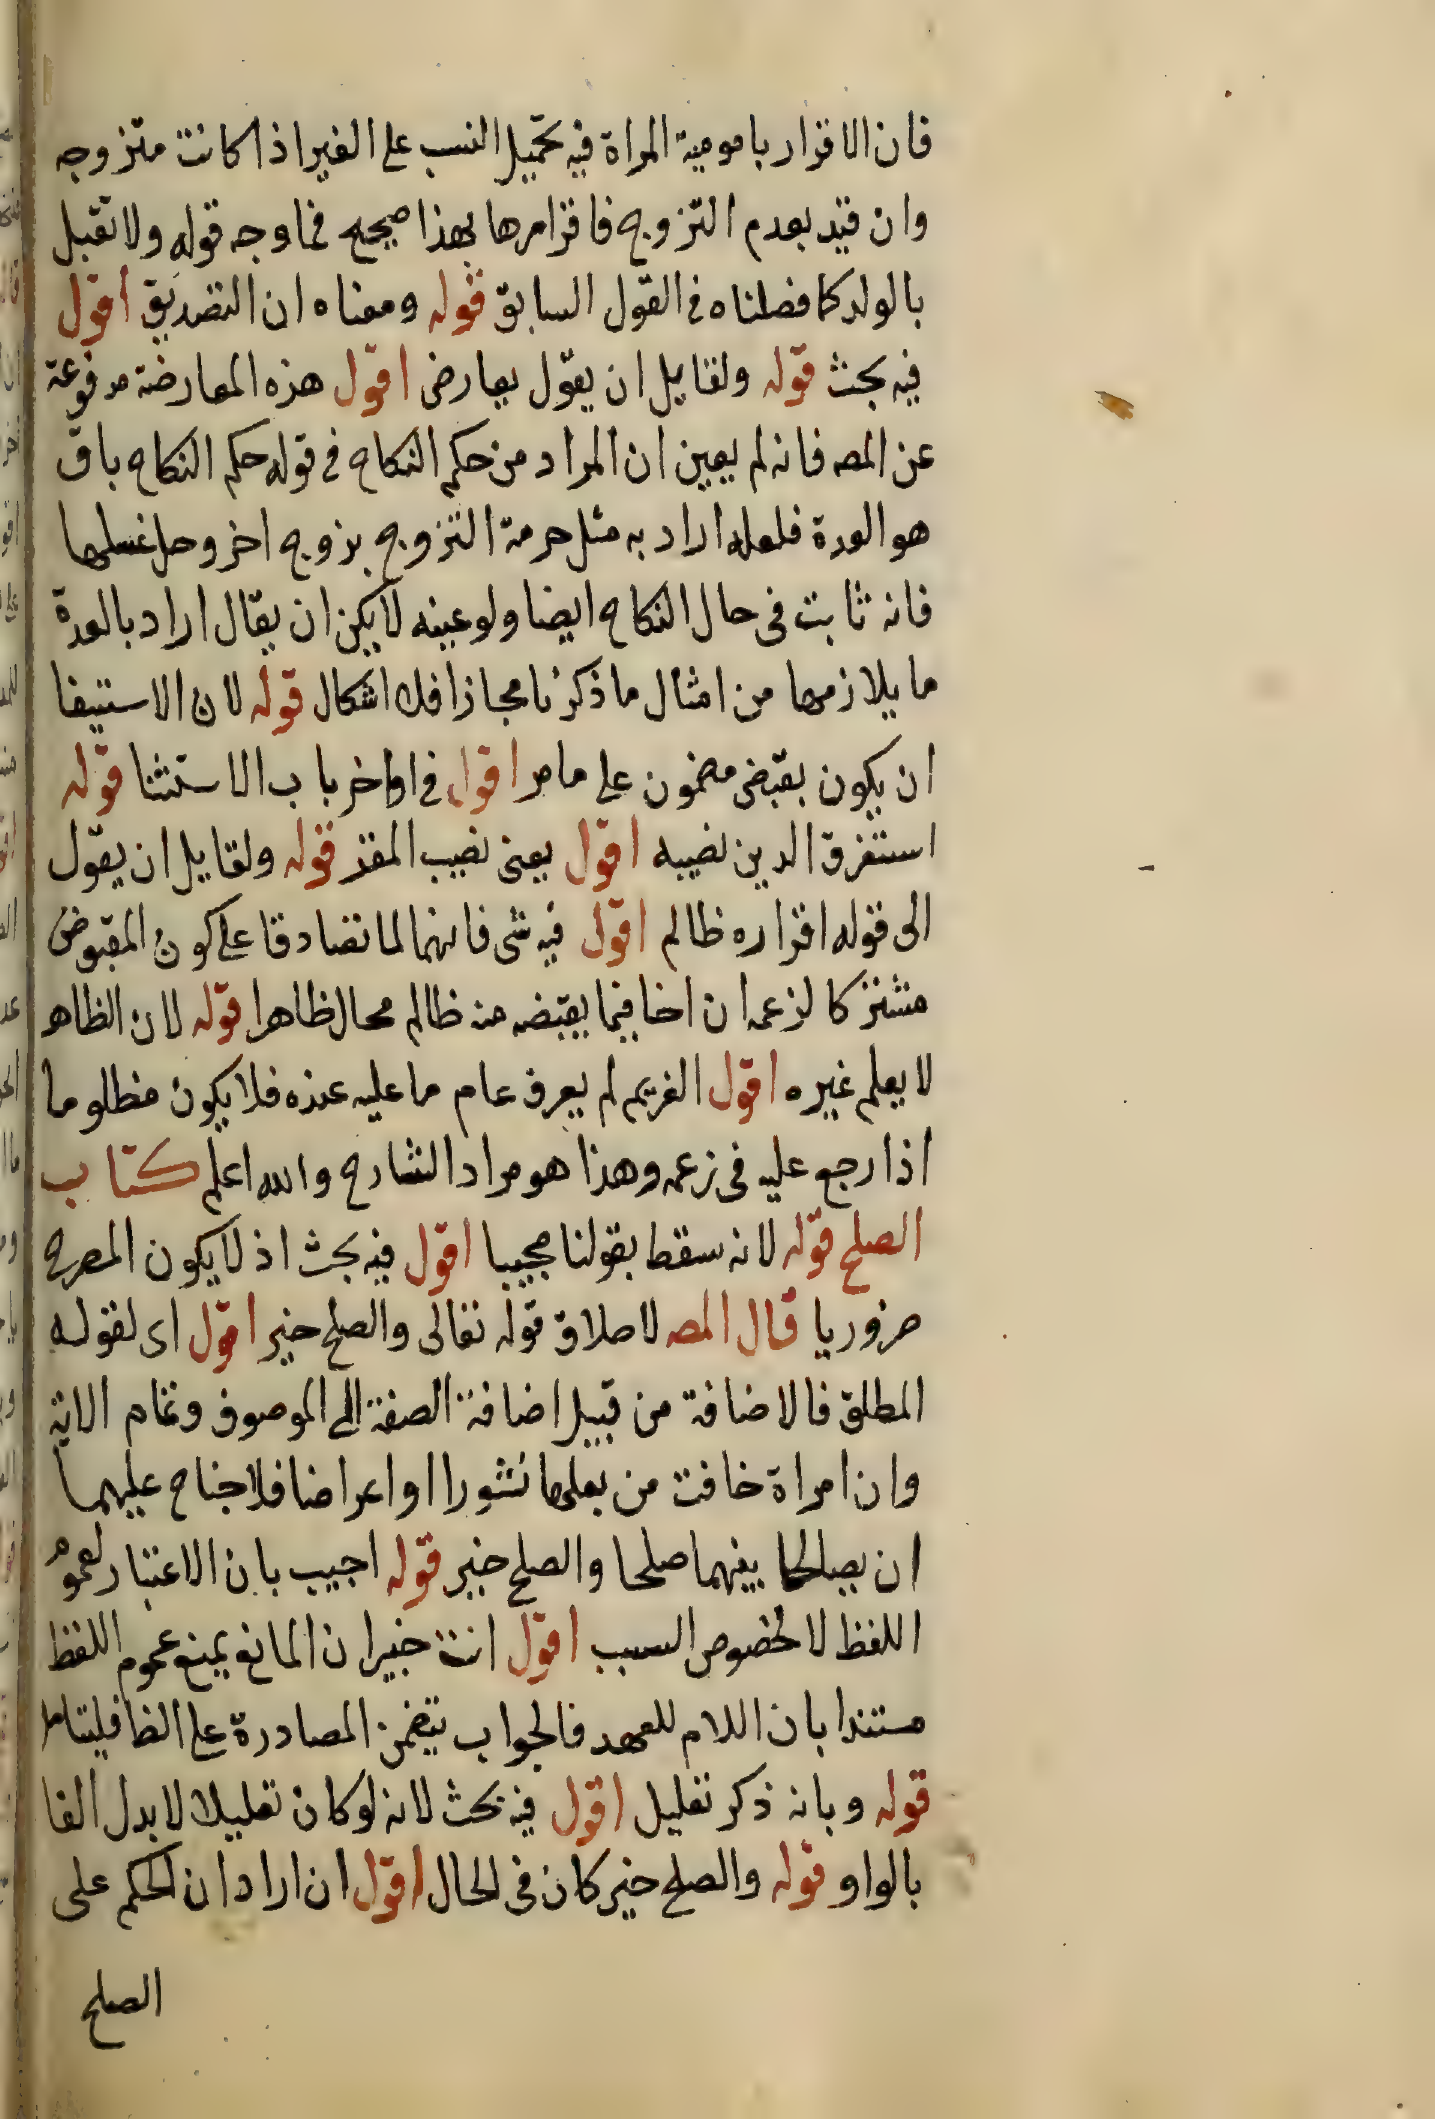 فان الاقرار بامومية المراة فيه تحميل النسب على الغير اذا كانت متزوجه
وان قيد بعدم التزوج فاقرارها بهذا صحيح فما وجه قوله ولا تقبل
بالولد كما فصلناه في القول السابق قوله ومعناه ان التصديق اقول
فيه بحث قوله ولقايل ان يقول يعارض اقول هذه المعارضة مدفوعة
عن المصه فانه لم يعين ان المراد من حكم النكاح في قوله حكم النكاح باق
هو العدة فلعله اراد به مثل حرمة التزوج بزوج اخر وحل غسلها
فانه ثابت في حال النكاح ايضا ولو عينه لا يمكن ان يقال اراد بالعدة
ما يلازمها من امثال ما ذكرنا مجازا فلا اشكال قوله لان الاستيفا
ان يكون بقبض مضمون على ما مر اقول في اواخر باب الاستثنا قوله
استغرق الدين نصيبه اقول يعنى نصيب المقر قوله ولقايل ان يقول
الى قوله اقراره ظالم اقول فيه شى فانهما لما تصادقا على كون المقبوض
مشتركا لزعمه ان اخا فيما يقبضه منه ظالم محال ظاهرا قوله لان الظاهر
لا يعلم غيره اقول الغريم لم يعرف عام ما عليه عنده فلا يكون مظلوما
اذا رجع عليه في زعمه وهذا هو مراد الشارح والله اعلم كتاب
الصلح قوله لانه سقط بقولنا مجيبا اقول فيه بحث اذ لا يكون المصرح
ضروريا قال المصه لاطلاق قوله تعالى والصلح خير اقول اى لقوله
المطلق فالاضافة من قبيل اضافة الصفة الى الموصوف وتمام الاية
وان امراة خافت من بعلها نشورا او اعراضا فلا جناح عليهما
ان يصالحا بينهما صلحا والصلح خير قوله اجيب بان الاعتبار لعموم
اللفظ لا لخصوص السبب اقول انت خبير ان المانع يمنع عموم اللفظ
مستندا بان اللام للعهد فالجواب يتضمن المصادرة على الظا فليتامل
قوله وبانه ذكر تعليل اقول فيه بحث لانه لو كان تعليلا لابدل الفا
بالواو قوله والصلح خير كان في الحال اقول ان اراد ان الحكم على
الصلح